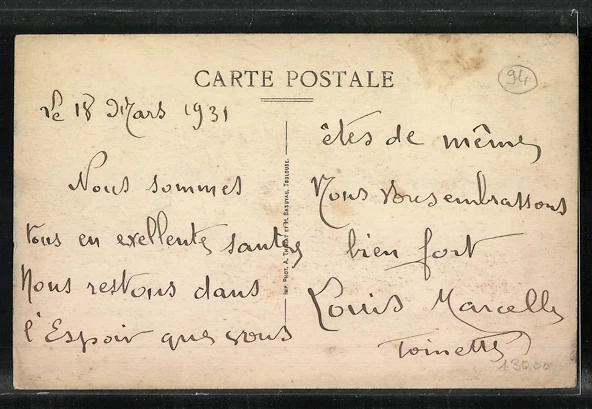 CARTE POSTALE
94
Le 18 Mars 1931
Nous sommes
tous en exellente santée
Nous restons dans
l'Espoir que vous
IMP. PHOT. A. THIRIAT ET M. BASUYAU, TOULOUSE.
êtes de même
Nous vous embrassons
bien fort
Louis Marcelle
Toinette
130.00